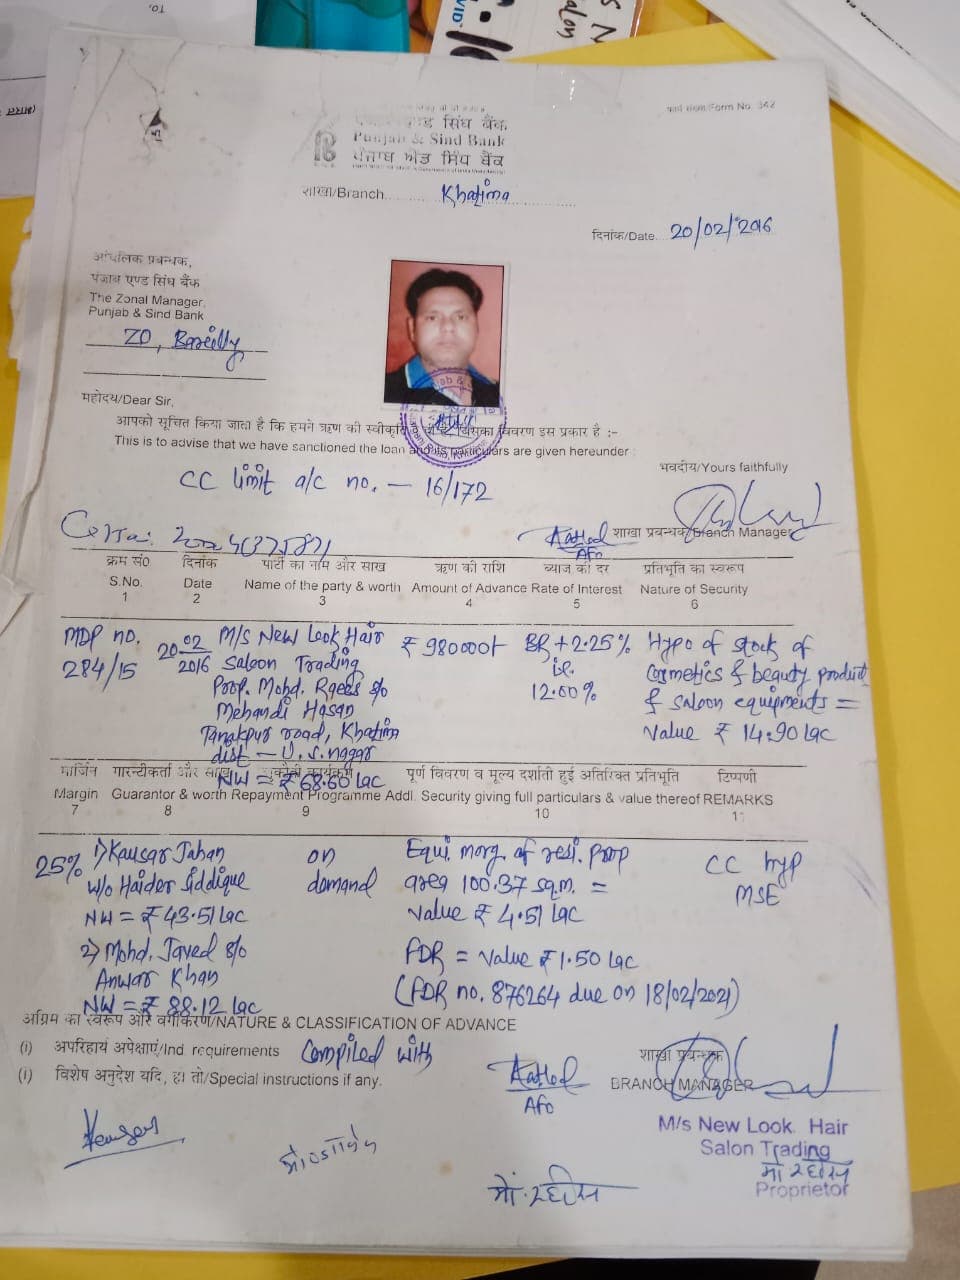 TO,
फार्म संख्या/Form No. 342
पंजाब एण्ड सिंध बैंक
Punjab & Sind Bank
ਪੰਜਾਬ ਐਂਡ ਸਿੰਧ ਬੈਂਕ
शाखा/Branch Khatima
दिनांक/Date 20/02/2016
आंचलिक प्रबन्धक,
पंजाब एण्ड सिंध बैंक
The Zonal Manager,
Punjab & Sind Bank
ZO, Bareilly
महोदय/Dear Sir,
आपको सूचित किया जाता है कि हमने ऋण की स्वीकृति दी है, जिसका विवरण इस प्रकार है :-
This is to advise that we have sanctioned the loan and its particulars are given hereunder :
भवदीय/Yours faithfully
CC limit a/c no. - 16/172
शाखा प्रबन्धक/Branch Manager
AFO
क्रम सं० दिनांक पार्टी का नाम और साख ऋण की राशि ब्याज की दर प्रतिभूति का स्वरूप
S.No. Date Name of the party & worth Amount of Advance Rate of Interest Nature of Security
1 2 3 4 5 6
MDP no. 284/15
20/02/2016
M/s New Look Hair
Saloon Trading
Prop. Mohd. Raees s/o
Mehandi Hasan
Tanakpur road, Khatima
dist - U.S.nagar
NW = ₹ 68.60 Lac
₹ 980000/-
BR + 2.25%
i.e.
12.00%
Hypo of stock of
Cosmetics & beauty product
& saloon equipments =
Value ₹ 14.90 Lac
मार्जिन गारन्टीकर्ता और साख चुकौती कार्यक्रम पूर्ण विवरण व मूल्य दर्शाती हुई अतिरिक्त प्रतिभूति टिप्पणी
Margin Guarantor & worth Repayment Programme Addl. Security giving full particulars & value thereof REMARKS
7 8 9 10 11
25%
1) Kausar Jahan
W/o Haider Siddique
NW = ₹ 43.51 Lac
2) Mohd. Javed s/o
Anwar Khan
NW = ₹ 88.12 Lac
on
demand
Equi. morg. of resi. prop
area 100.37 sq.m. =
Value ₹ 4.51 Lac
FDR = Value ₹ 1.50 Lac
(FDR no. 876264 due on 18/02/2021)
CC hyp
MSE
अग्रिम का स्वरूप और वर्गीकरण/NATURE & CLASSIFICATION OF ADVANCE
(i) अपरिहार्य अपेक्षाएं/Ind requirements Compiled with
(i) विशेष अनुदेश यदि, हो तो/Special instructions if any.
शाखा प्रबन्धक
BRANCH MANAGER
AFO
M/s New Look Hair
Salon Trading
Proprietor